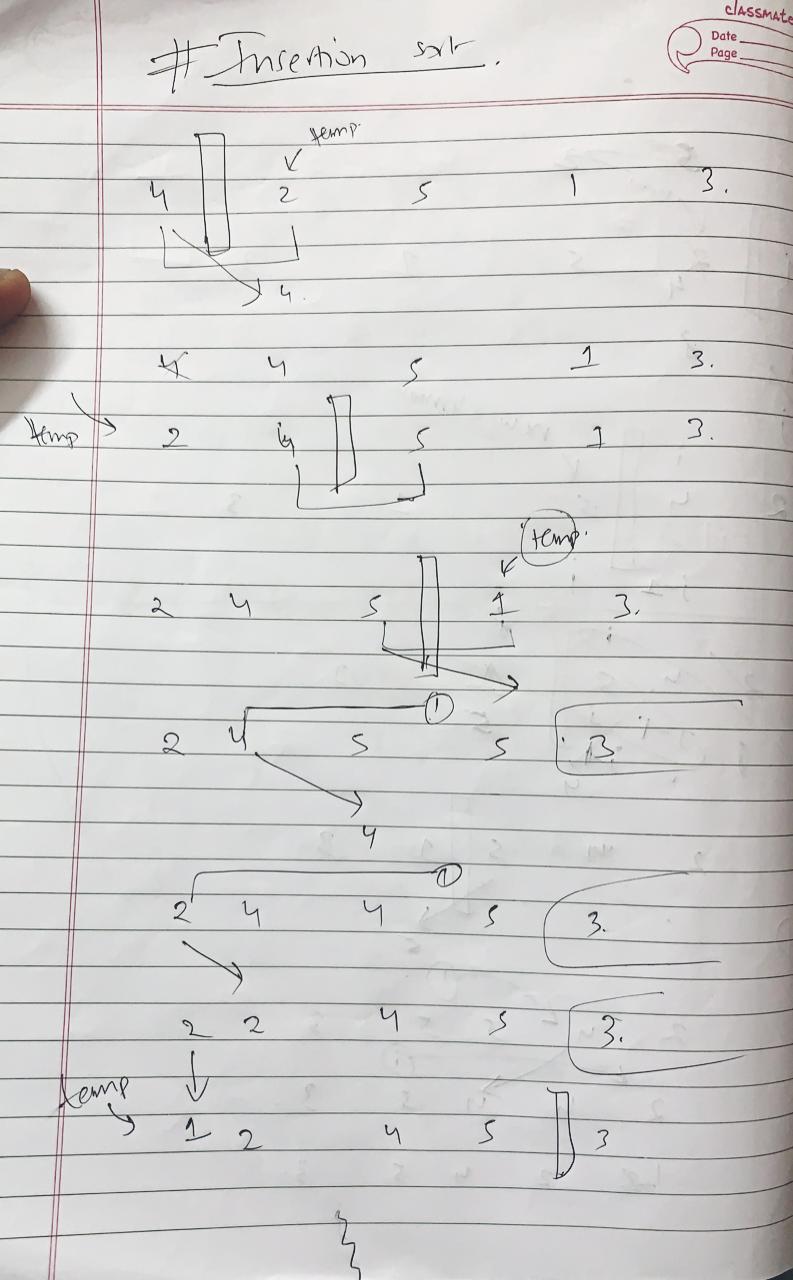 classmate
Date
Page
# Insertion sort.
temp.
4 2 5 1 3.
4.
4 4 5 1 3.
temp 2 4 5 1 3.
temp.
2 4 5 1 3.
1
2 4 5 5 3.
4
1
2 4 4 5 3.
2 2 4 5 3.
temp
1 2 4 5 3